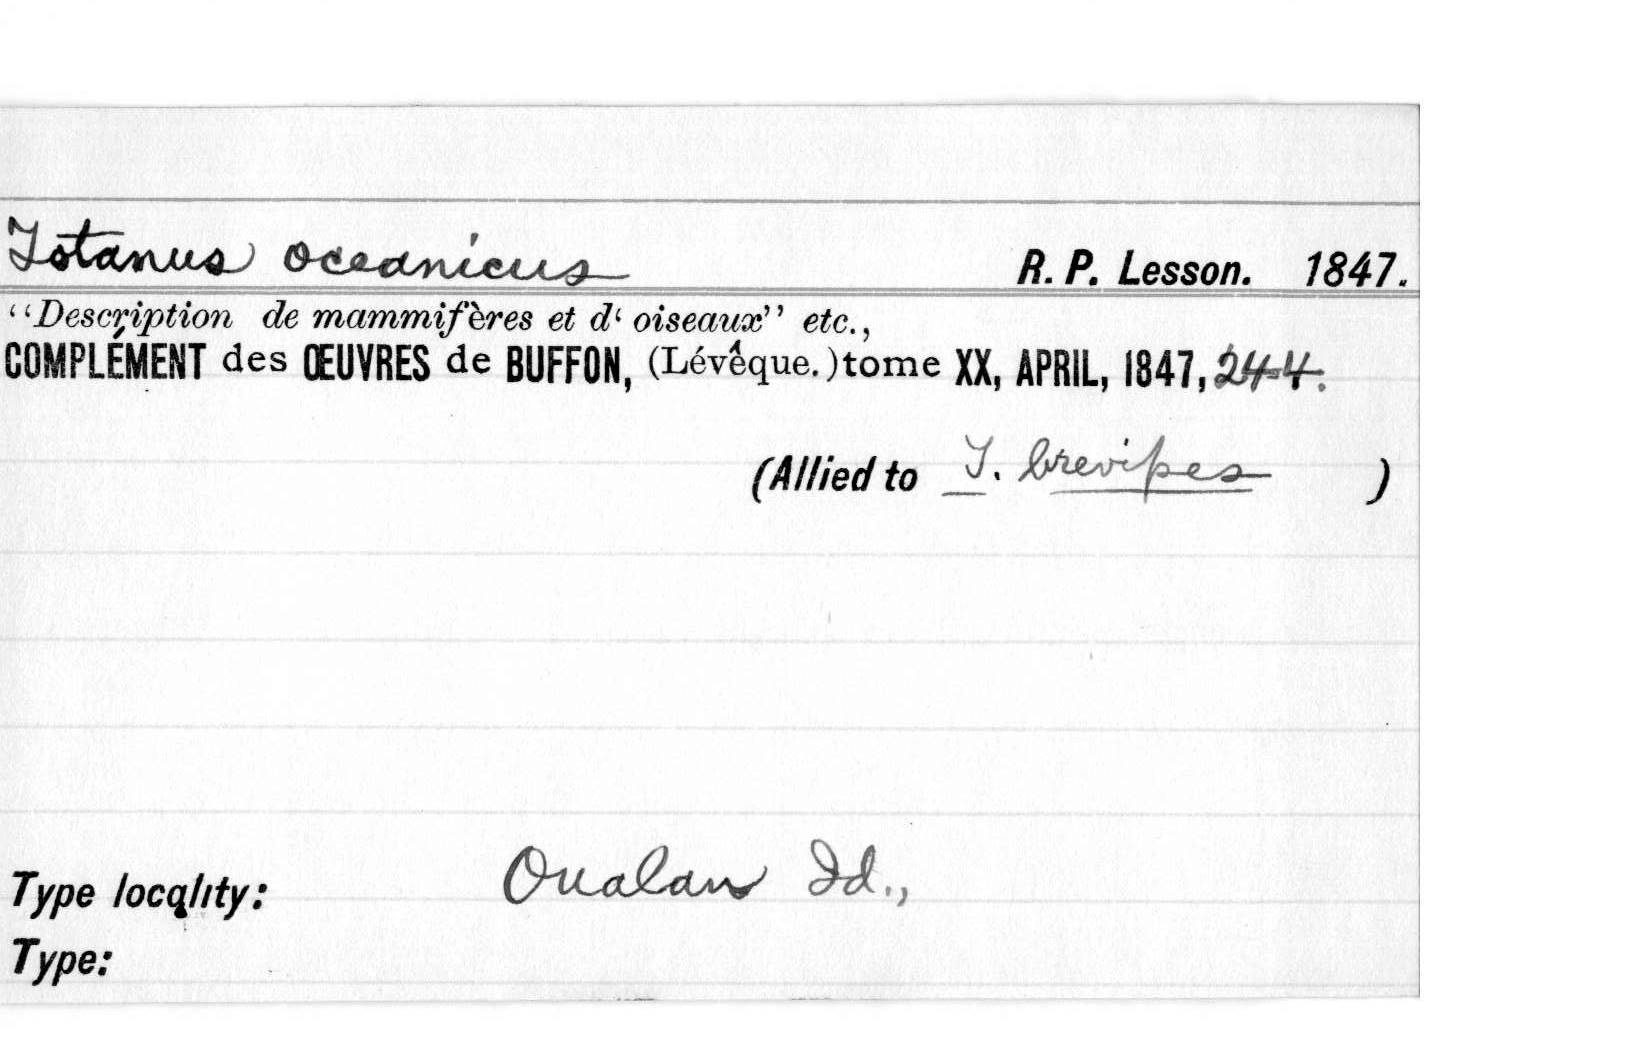 Totanus oceanicus R. P. Lesson. 1847.
"Description de mammifères et d‘ oiseaux" etc.,
COMPLÉMENT des ŒUVRES de BUFFON, (Lévêque.) tome XX, APRIL, 1847, 244.
(Allied to T. brevipes )
Type locality: Oualan Id.,
Type: